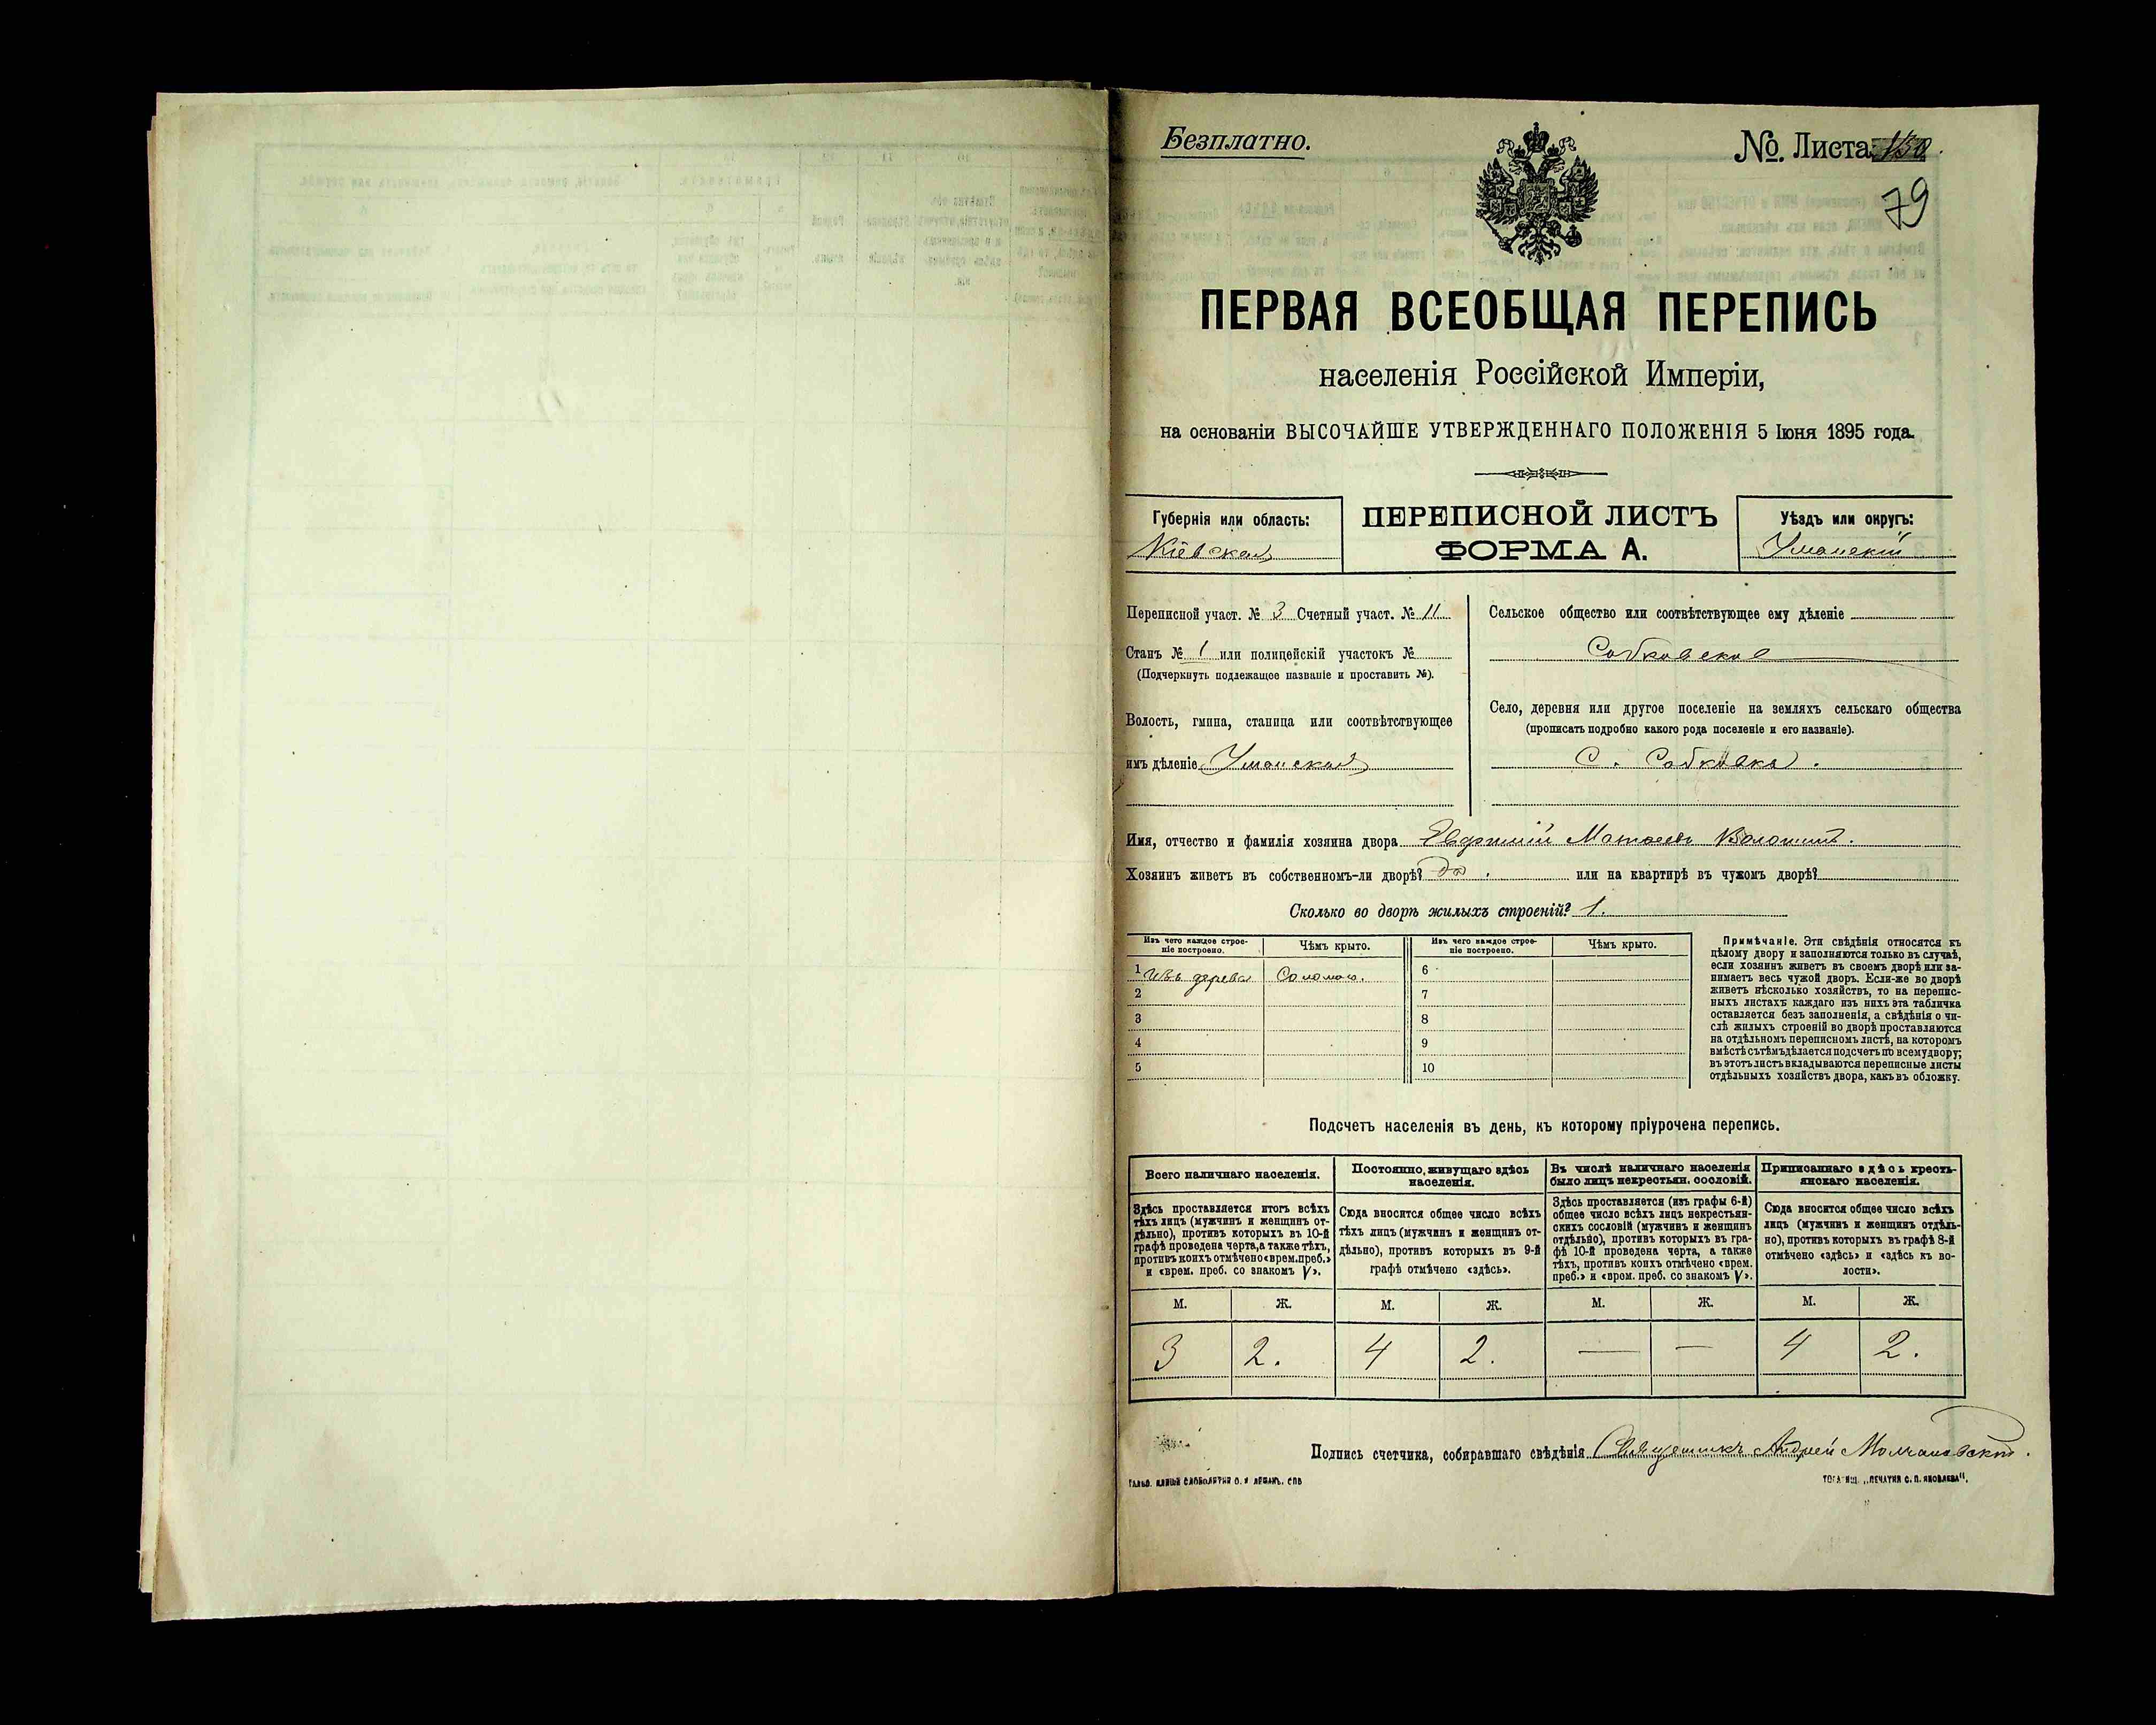 Безплатно.
№. Листа 150.
79
ПЕРВАЯ ВСЕОБЩАЯ ПЕРЕПИСЬ
населенія Россійской Имперіи,
на основаніи ВЫСОЧАЙШЕ УТВЕРЖДЕННАГО ПОЛОЖЕНІЯ 5 Іюня 1895 года.
Губернія или область:
Кіевская
ПЕРЕПИСНОЙ ЛИСТЪ
ФОРМА А.
Уѣздъ или округъ:
Уманскій
Переписной участ. № 3 Счетный участ. № 11
Станъ № 1 или полицейскій участокъ №
(Подчеркнуть подлежащее названіе и проставить №).
Волость, гмина, станица или соотвѣтствующее
имъ дѣленіе Уманская
Сельское общество или соотвѣтствующее ему дѣленіе
Собковское
Село, деревня или другое поселеніе на земляхъ сельскаго общества
(прописать подробно какого рода поселеніе и его названіе).
С. Собковка.
Имя, отчество и фамилія хозяина двора Матвеевъ Волошинъ.
Хозяинъ живетъ въ собственномъ-ли дворѣ? да. или на квартирѣ въ чужомъ дворѣ?
Сколько во дворѣ жилыхъ строеній? 1.
Изъ чего каждое строе-
ніе построено.
Чѣмъ крыто.
Изъ чего каждое строе-
ніе построено.
Чѣмъ крыто.
1 Изъ дерева Соломою. 6
2 7
3 8
4 9
5 10
Примѣчаніе. Эти свѣдѣнія относятся къ
цѣлому двору и заполняются только въ случаѣ,
если хозяинъ живетъ въ своемъ дворѣ или за-
нимаетъ весь чужой дворъ. Если-же во дворѣ
живетъ нѣсколько хозяйствъ, то на перепис-
ныхъ листахъ каждаго изъ нихъ эта табличка
оставляется безъ заполненія, а свѣдѣнія о чи-
слѣ жилыхъ строеній во дворѣ проставляются
на отдѣльномъ переписномъ листѣ, на которомъ
вмѣстѣ съ тѣмъ дѣлается подсчетъ по всему двору;
въ этотъ листъ вкладываются переписные листы
отдѣльныхъ хозяйствъ двора, какъ въ обложку.
Подсчетъ населенія въ день, къ которому пріурочена перепись.
Всего наличнаго населенія.
Здѣсь проставляется итогъ всѣхъ
тѣхъ лицъ (мужчинъ и женщинъ от-
дѣльно), противъ которыхъ въ 10-й
графѣ проведена черта, а также тѣхъ,
противъ коихъ отмѣчено «врем. преб.»
и «врем. преб. со знакомъ V».
Постоянно живущаго здѣсь
населенія.
Сюда вносится общее число всѣхъ
тѣхъ лицъ (мужчинъ и женщинъ от-
дѣльно), противъ которыхъ въ 9-й
графѣ отмѣчено «здѣсь».
Въ числѣ наличнаго населенія
было лицъ некрестьян. сословій.
Здѣсь проставляется (изъ графы 6-й)
общее число всѣхъ лицъ некрестьян-
скихъ сословій (мужчинъ и женщинъ
отдѣльно), противъ которыхъ въ гра-
фѣ 10-й проведена черта, а также
тѣхъ, противъ коихъ отмѣчено «врем.
преб.» и «врем. преб. со знакомъ V».
Приписаннаго здѣсь кресть-
янскаго населенія.
Сюда вносится общее число всѣхъ
лицъ (мужчинъ и женщинъ отдѣль-
но), противъ которыхъ въ графѣ 8-й
отмѣчено «здѣсь» и «здѣсь къ во-
лости».
М. Ж. М. Ж. М. Ж. М. Ж.
3 2. 4 2. — — 4 2.
Подпись счетчика, собиравшаго свѣдѣнія Священникъ Андрей Молчановскій.
ТОВАРИЩ. „ПЕЧАТНЯ С. П. ЯКОВЛЕВА".